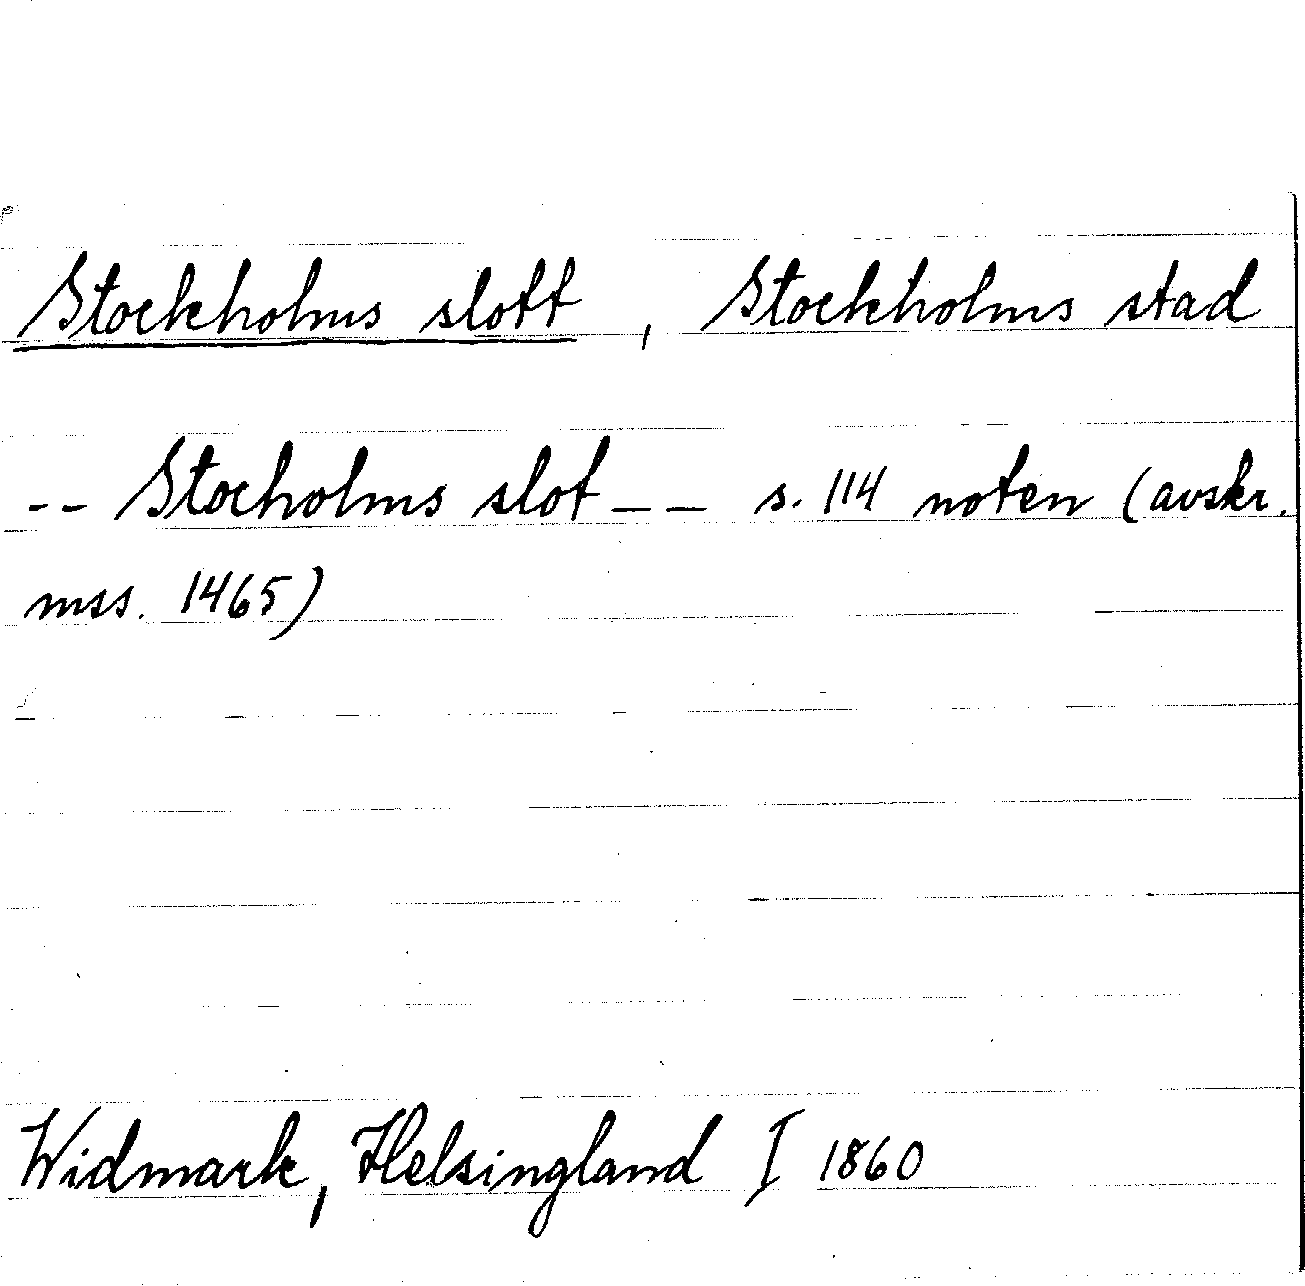 Stockholms slott, Stockholms stad
-- Stocholms slot -- s. 114 noten (avskr.
mss. 1465)
Widmark, Helsingland I 1860